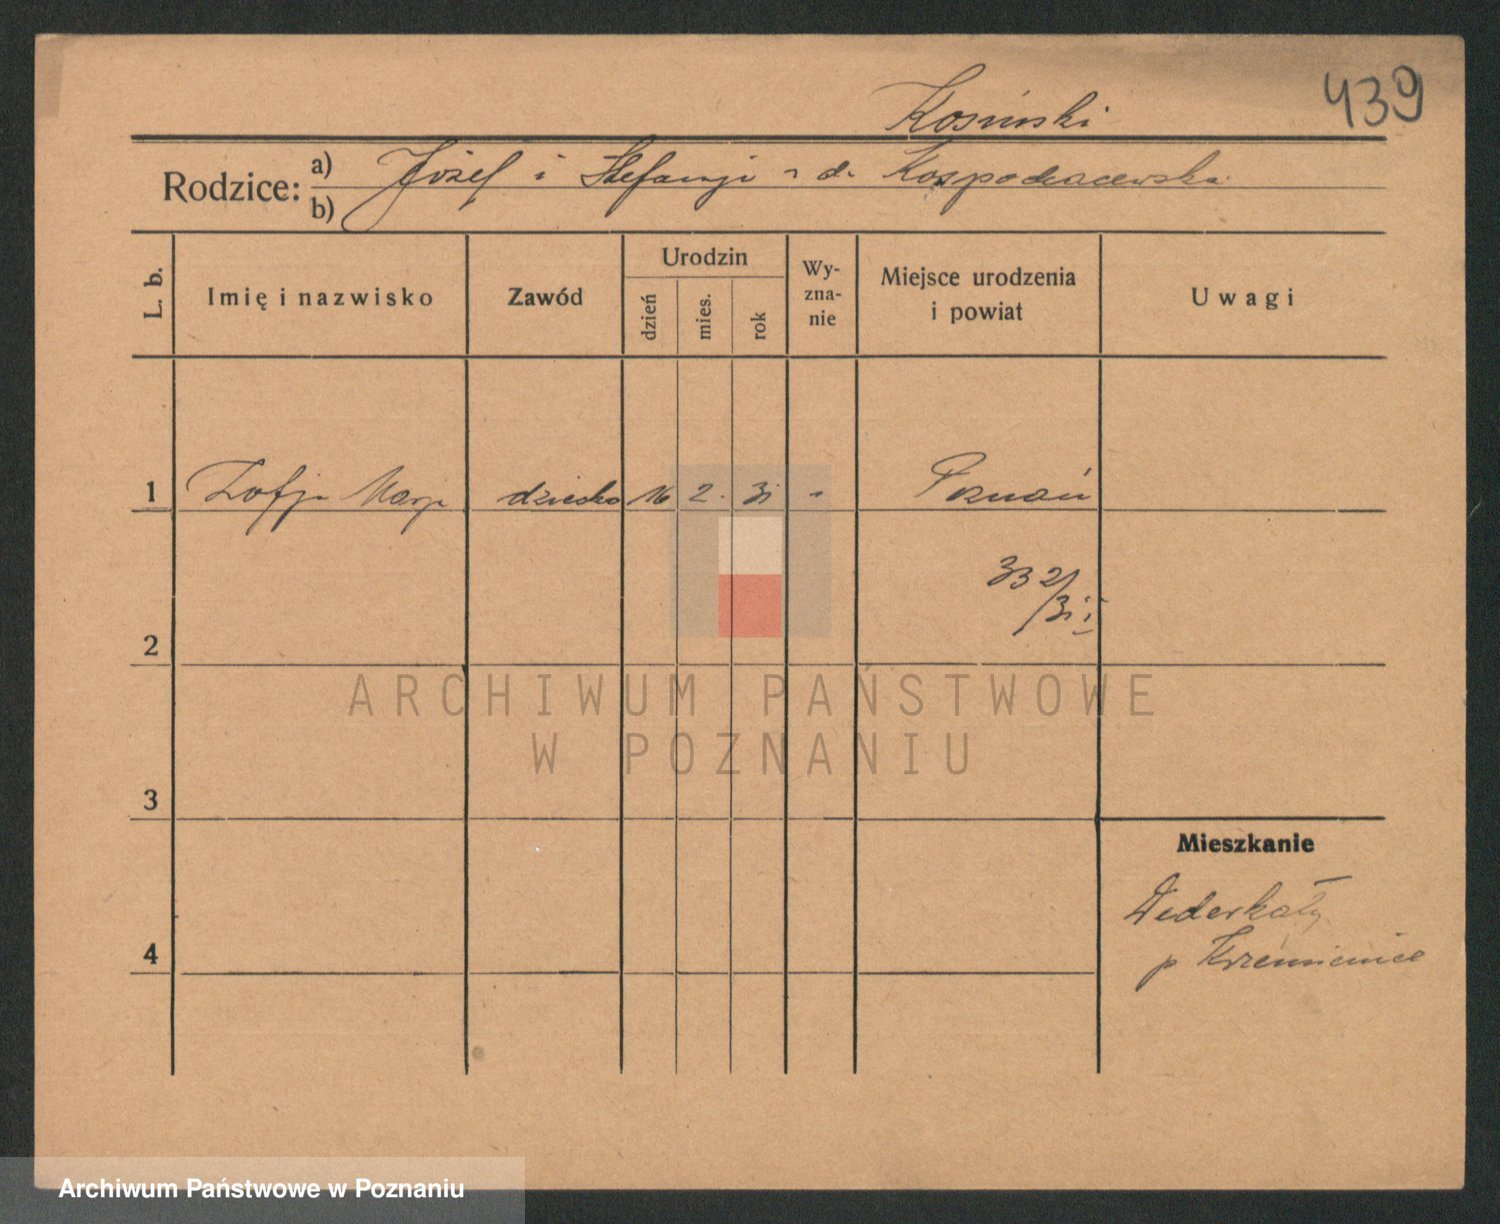 439
Kosiński
Rodzice: a) Józef i Stefanji z d.
b)
L. b.
Imię i nazwisko
Zawód
Urodzin
dzień
mies.
rok
Wy-
zna-
nie
Miejsce urodzenia
i powiat
Uwagi
1 Zofja Marja dziecko 16 2. 31 - Poznań
332/31
2
3
4
Mieszkanie
p Krzemieniec
ARCHIWUM PAŃSTWOWE
W POZNANIU
Archiwum Państwowe w Poznaniu